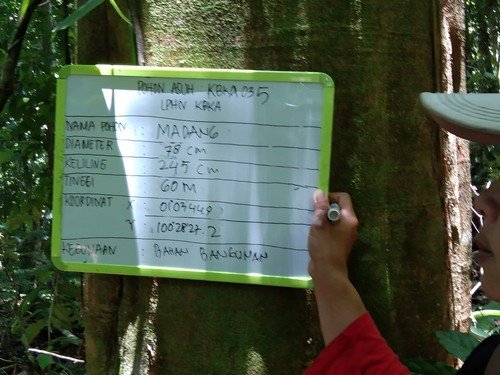 POHON ASUH KBKA 035
LPHN KBKA
NAMA POHON : MADANG
DIAMETER : 78 cm
KELILING : 245 cm
TINGGI : 60 M
KOORDINAT X : 0103449
Y : 1002827.2
KEGUNAAN : BAHAN BANGUNAN